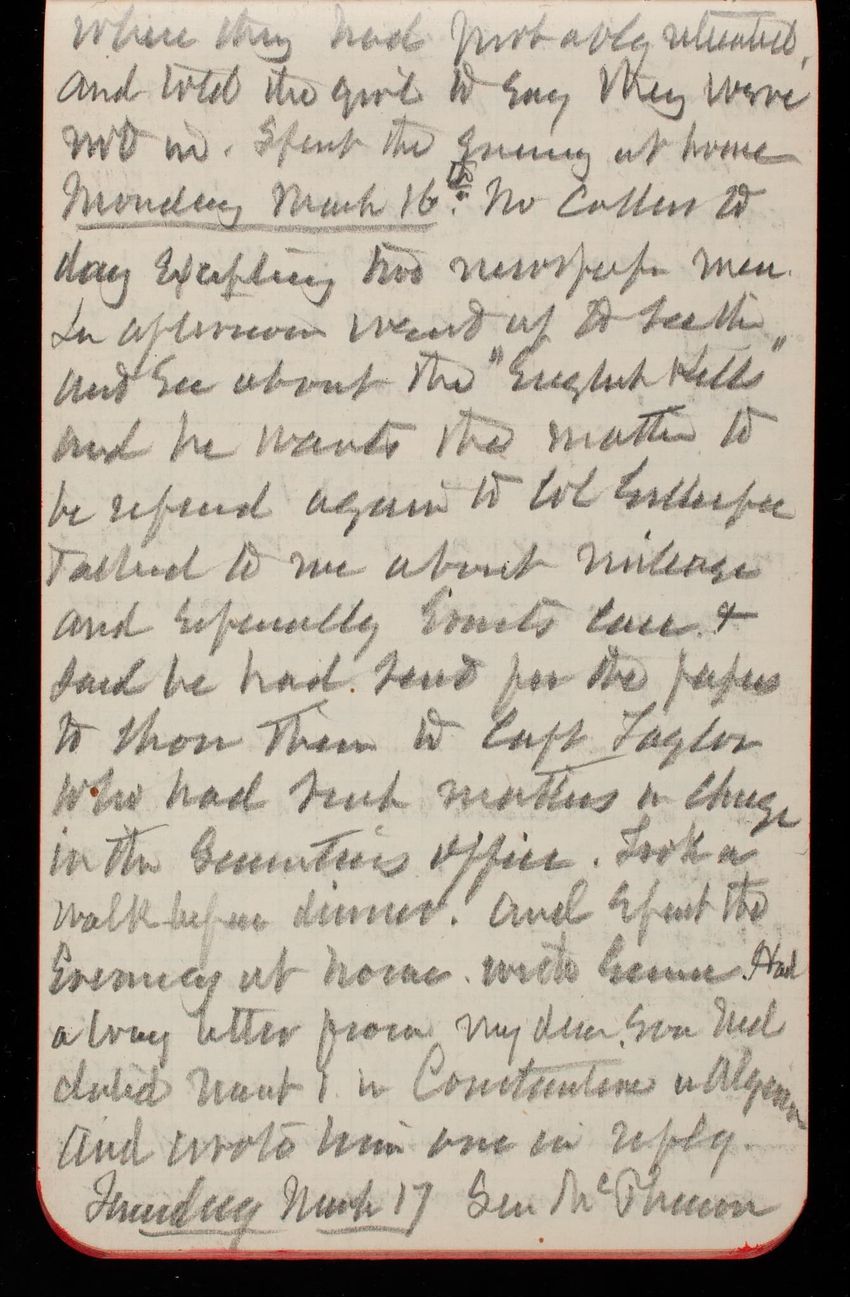 where they had probably retreated,
and told the girl to say they were
not in. Spent the Evening at home
Monday March 16th. No Callers to
day Excepting two newspaper men.
In afternoon went up to see the
and See about the "English Kills"
and he wants the matter to
be referred again to Col Gillespie
Talked to me about mileage
and Especially Grants case &
said he had send for the papers
to show them to Capt Taylor
who had such matters in charge
in the Secretaries office. Took a
walk before dinner. and Spent the
Evening at home. with Gemma. Had
a long letter from my dear Son Ned
dated March 1 in Constantine in Algeria
And wrote him one in reply.
Tuesday March 17 Gen